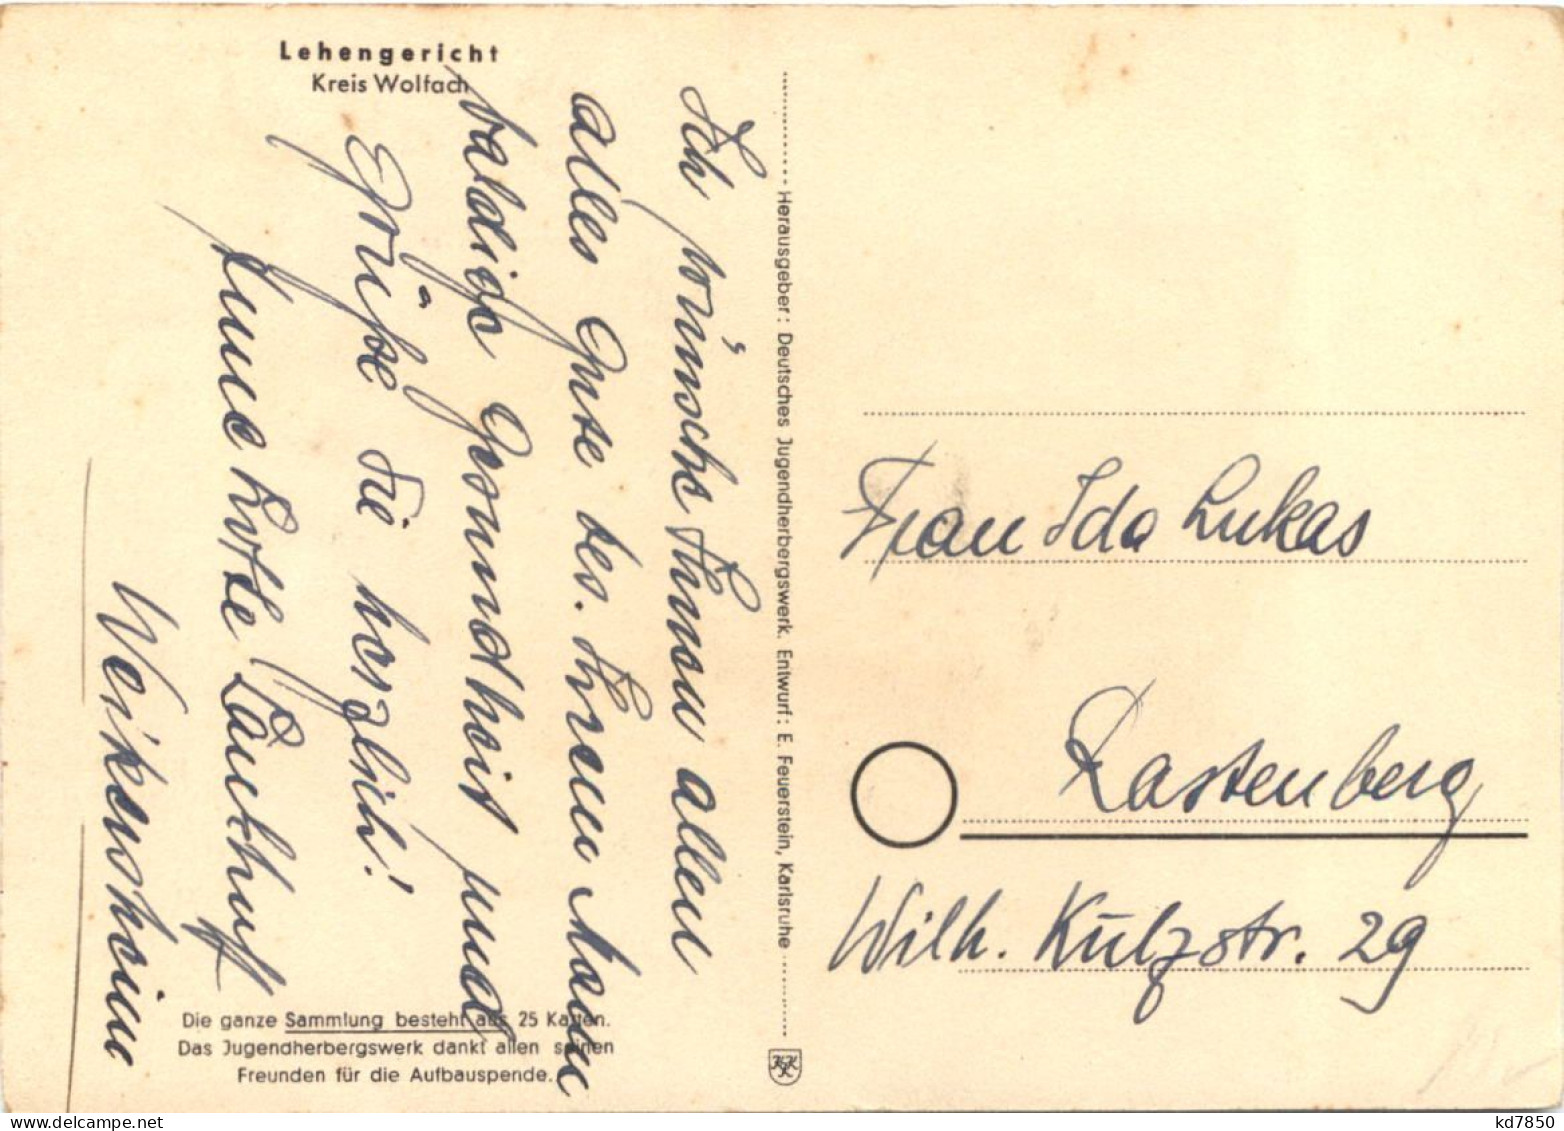 Lehengericht
Kreis Wolfach
Ich wünsche Ihnen allen
alles Gute bes. Ihrem Mann
baldige Gesundheit und
Grüße Sie herzlich!
Ihre Lotte
Weikersheim
Die ganze Sammlung besteht aus 25 Karten.
Das Jugendherbergswerk dankt allen seinen
Freunden für die Aufbauspende.
Herausgeber: Deutsches Jugendherbergswerk. Entwurf: E. Feuerstein, Karlsruhe
Frau Ida Lukas
Rastenberg
Wilh. Külzstr. 29
kd7850